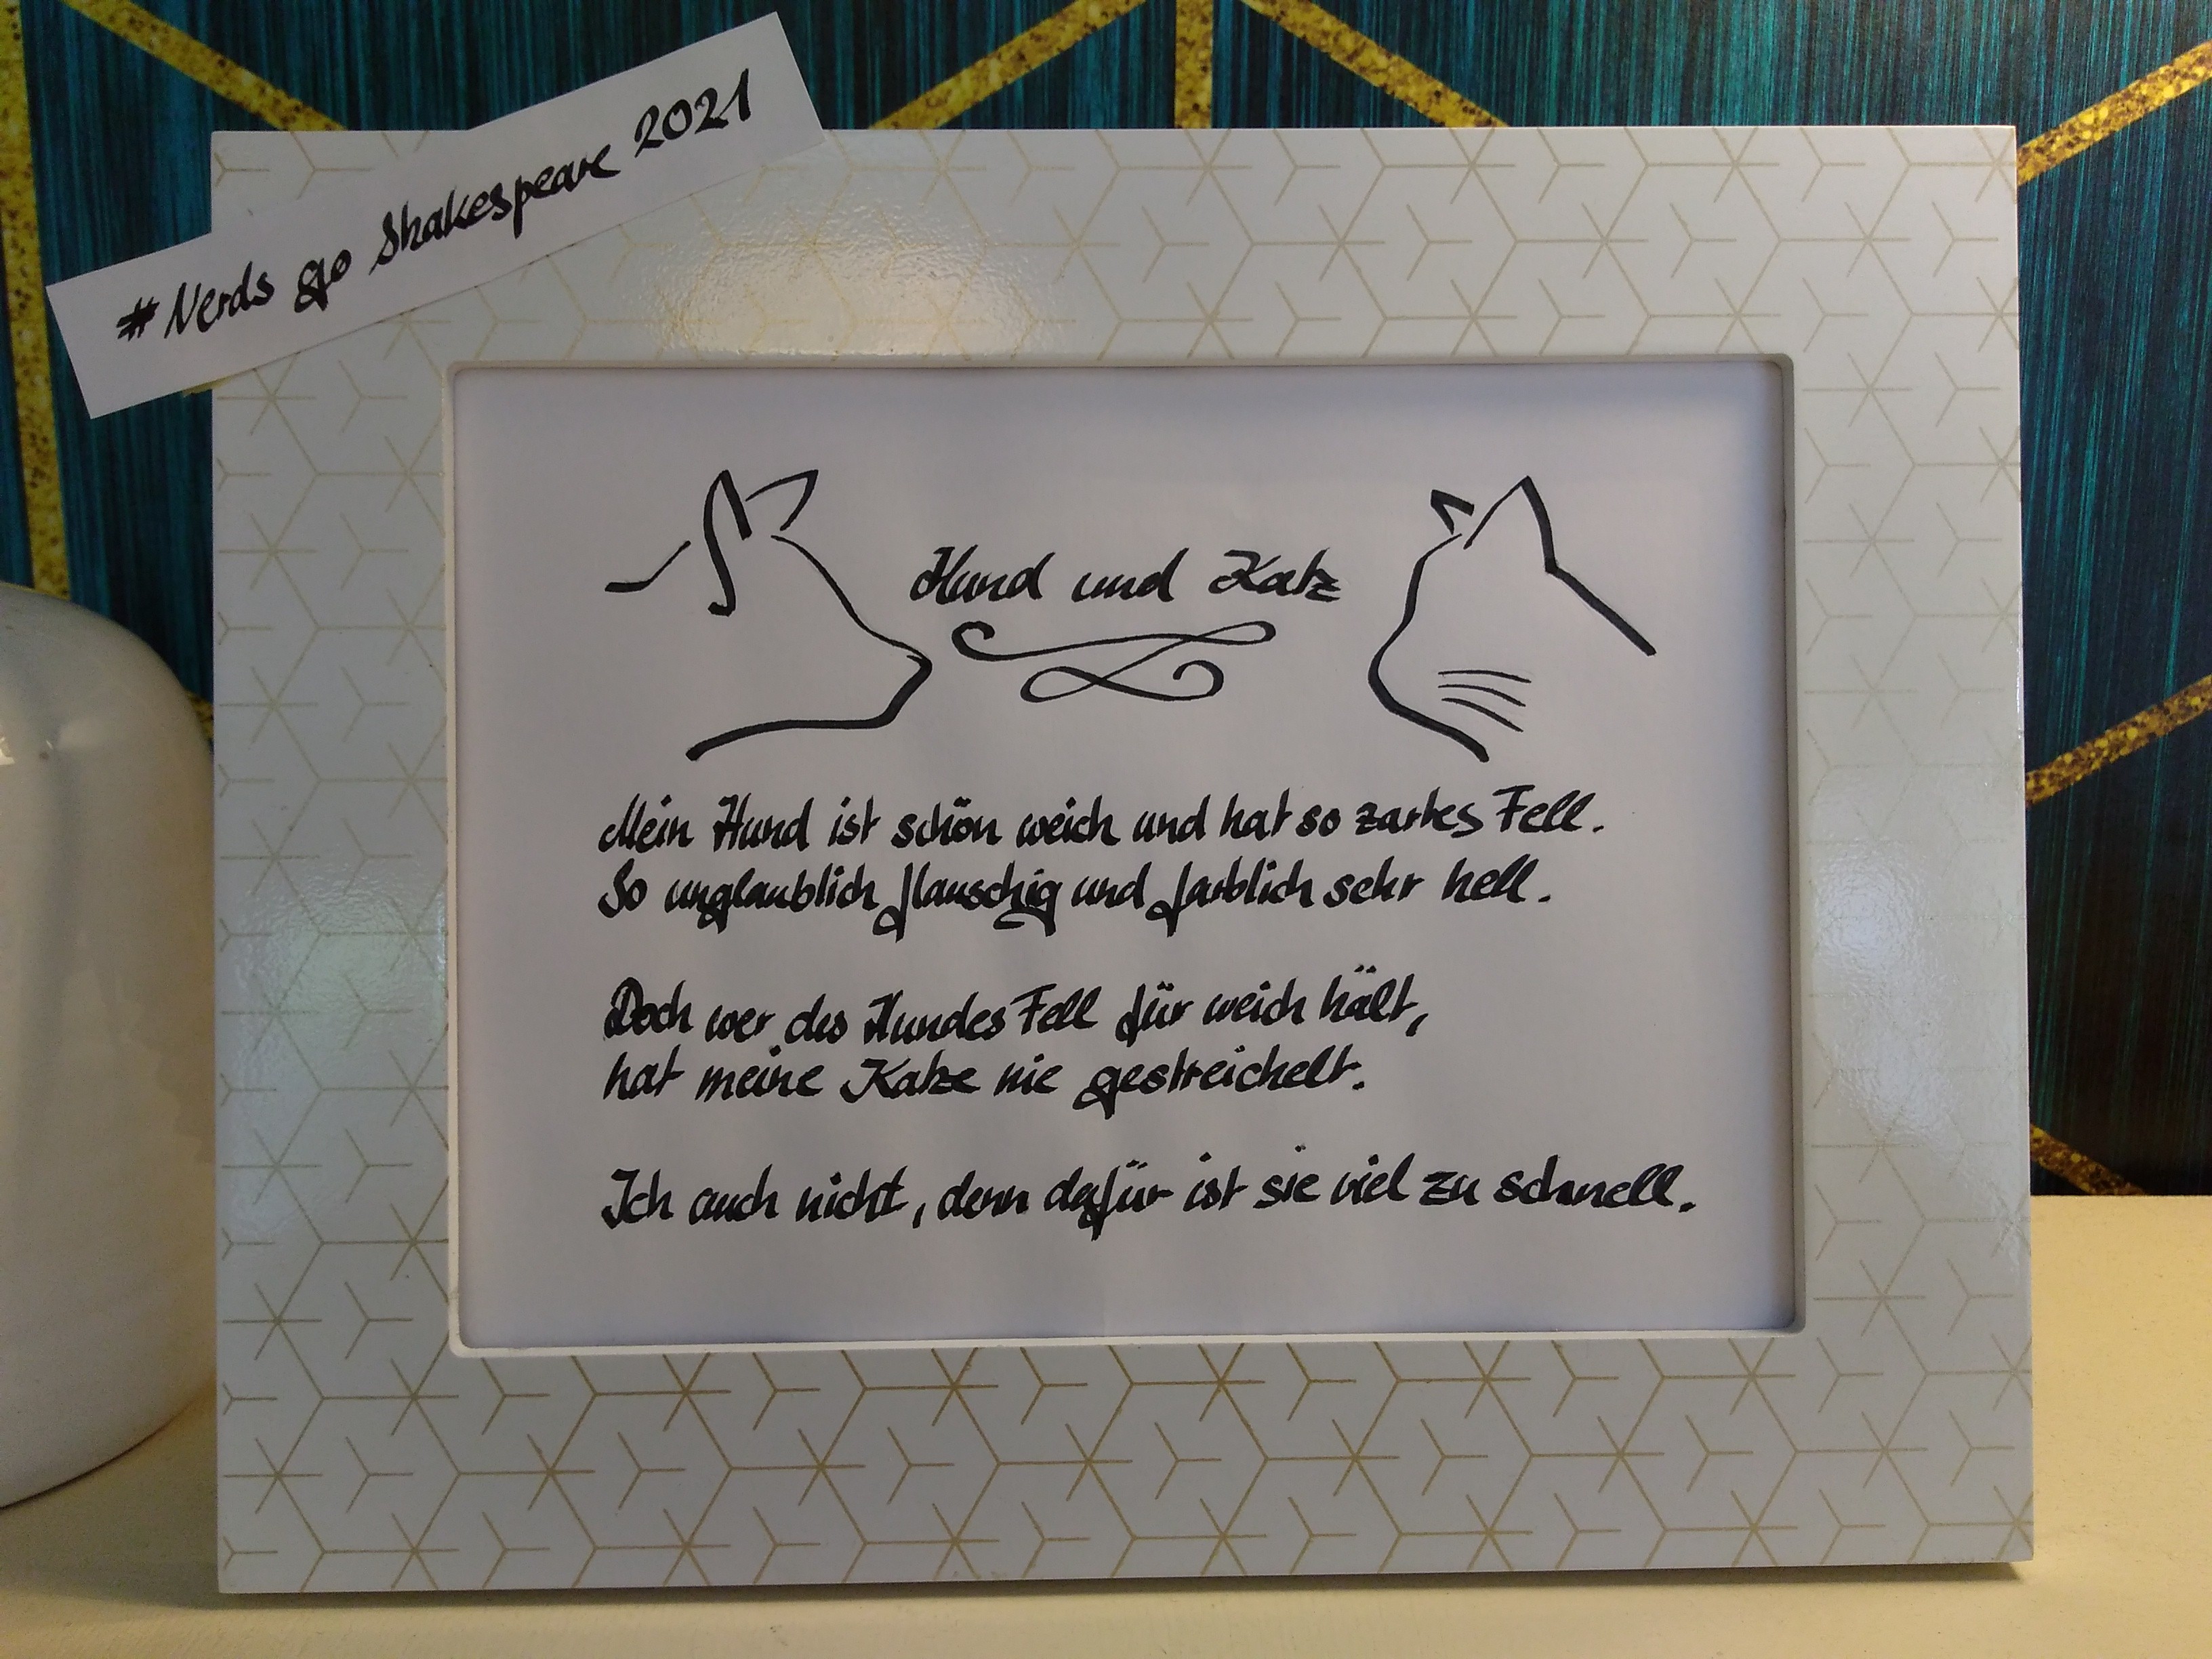 # Nerds go Shakespeare 2021
Hund und Katz
Mein Hund ist schön weich und hat so zartes Fell.
So unglaublich flauschig und farblich sehr hell.
Doch wer des Hundes Fell für weich hält,
hat meine Katze nie gestreichelt.
Ich auch nicht, denn dafür ist sie viel zu schnell.